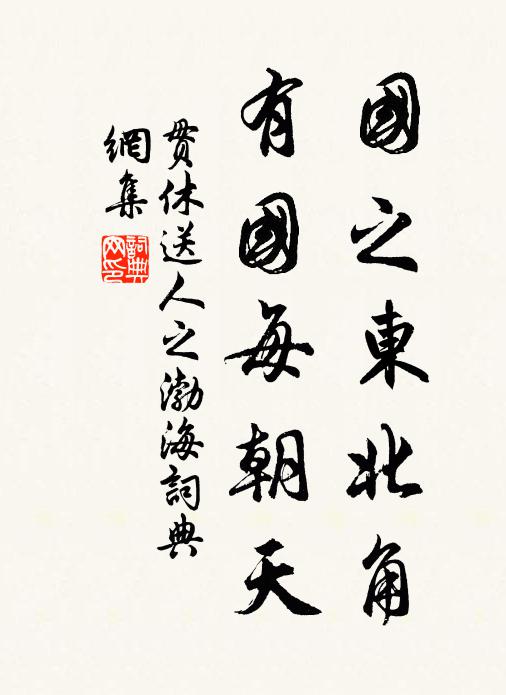 國之東北角
有國每朝天
貫休送人之渤海詞典
網集
詞典
网印